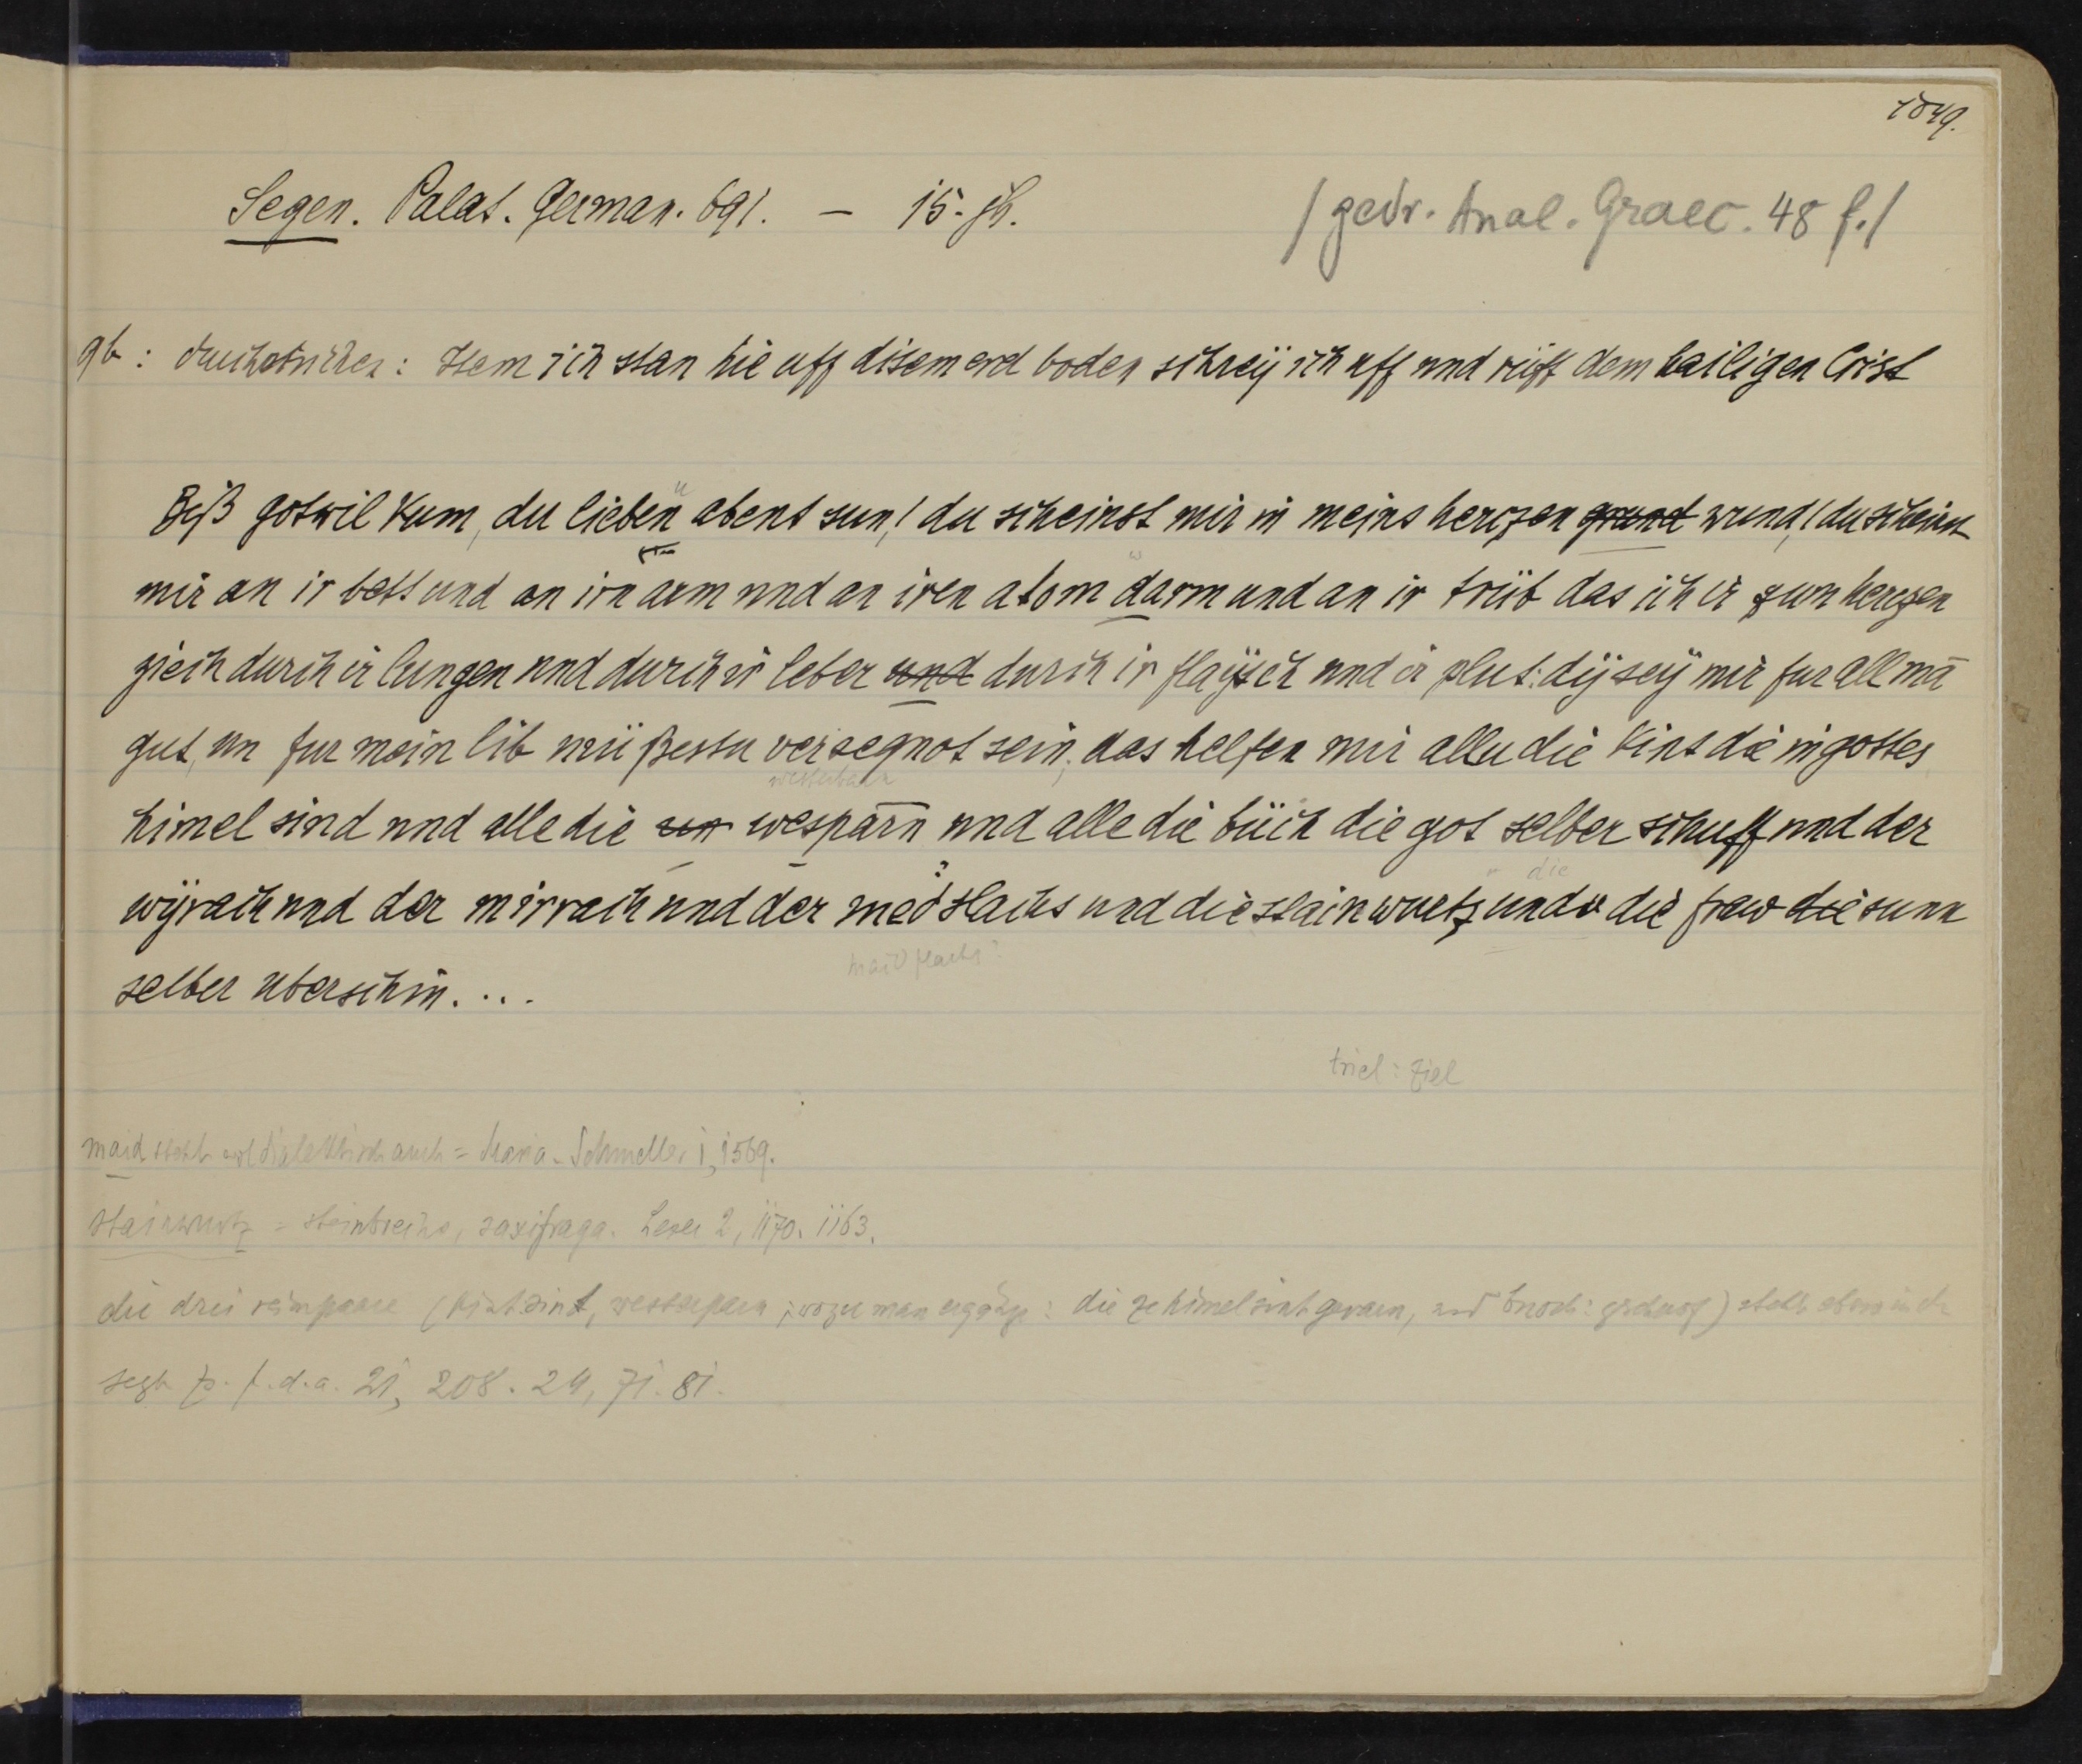 1049.
Segen. Palat. German. 691. — 15. jh. / gedr. Anal. Graec. 48 f. /
9b: durchstrichen: Item ich stan hie uff disem erd boden schreÿ ich uff und rüff dem hailigen Crist
Biß gotwil kum, du lieben abent sun,! du scheinst mir in meins herczen grund wund,! du scheinst
mir an ir bett und an irn arm und an iren atom darm und an ir trüb das ich ir zum herczen
ziech durch ir lungen und durch ir leber und durch ir flaÿsch und ir plut: dÿ seÿ mir fur all mā
gut, un fur mein lib müßestu versegnot sein, das helfen mir allu die kint die in gottes
westerbarn
himel sind und alle die un wesparn und alle die büch die got selber schuff und der
die
wÿrach und der mirrach und der med slachs und die stainwurtz und die fraw die sunn
maid flachs?
selber uberschin. ...
triel: ziel
maid steht dialektisch auch = Maria. Schmeller 1, 1569.
stainwurtz = steinbrech, saxifraga. Lexer 2, 1170. 1163.
die drei reimpaare (kint sint, westerparn, wozu man ergänze: die ze himel sint gevarn, und buoch: geschuof)
z. f. d. a. 21, 208. 24, 71. 81.